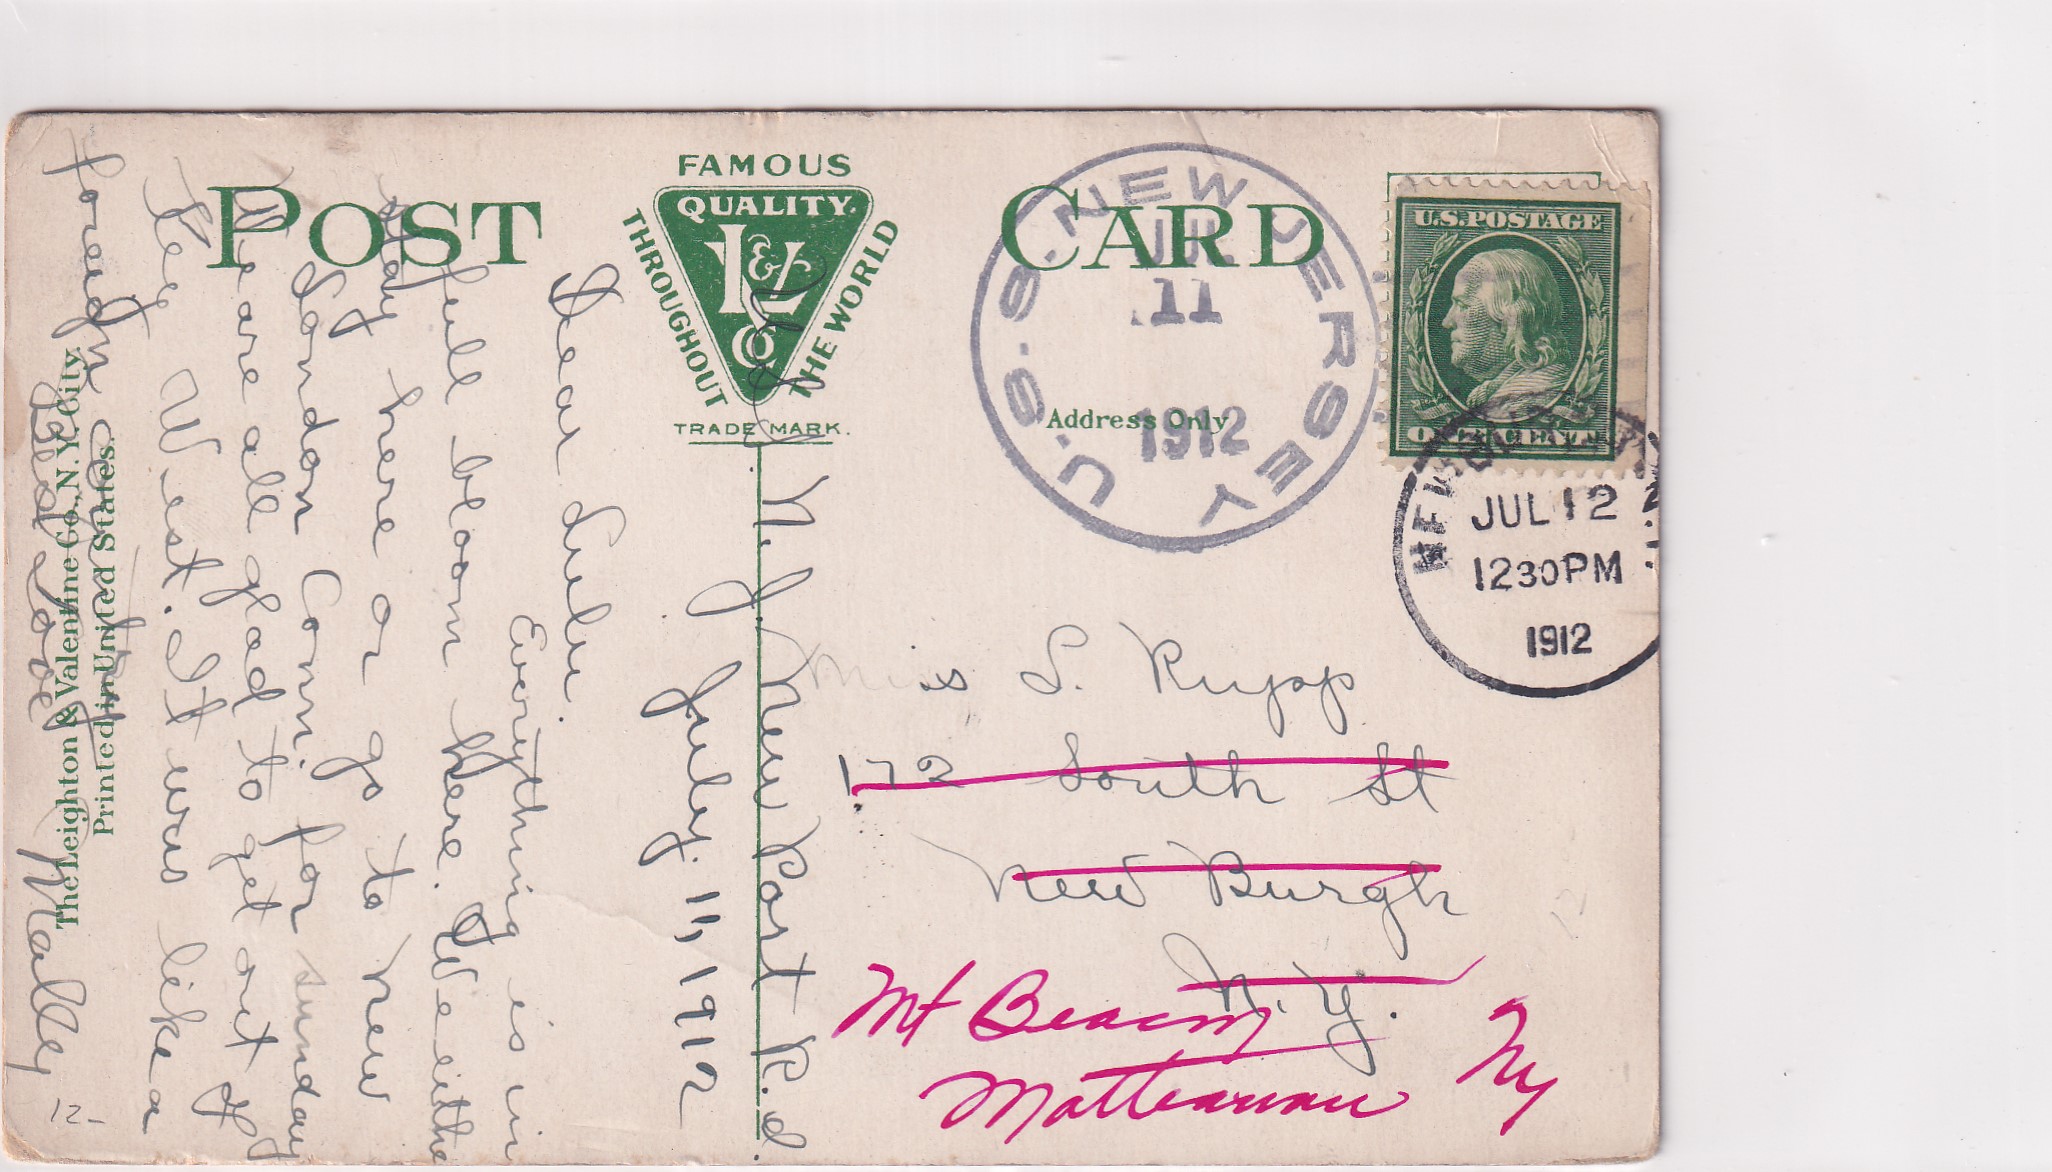 POST CARD
FAMOUS
QUALITY.
L & V
CO
THROUGHOUT
THE WORLD
TRADE MARK.
Address Only
U.S.S. NEW JERSEY
JUL
11
1912
U.S. POSTAGE
ONE CENT
JUL 12
12 30 PM
1912
N. J. New Port R. I.
July. 11, 1912
Dear Lulu.
Everything is in
full bloom here. We eithe
stay here or go to New
London Conn. for sunday
We are all glad to get out of
Key West. It was like a
foreign country
Best Love
Mally
Miss L. Rupp
172 South St
New Burgh
N. Y.
Mt Beacon
Matteawan
Ny
The Leighton & Valentine Co., N.Y. City.
Printed in United States.
12-
12